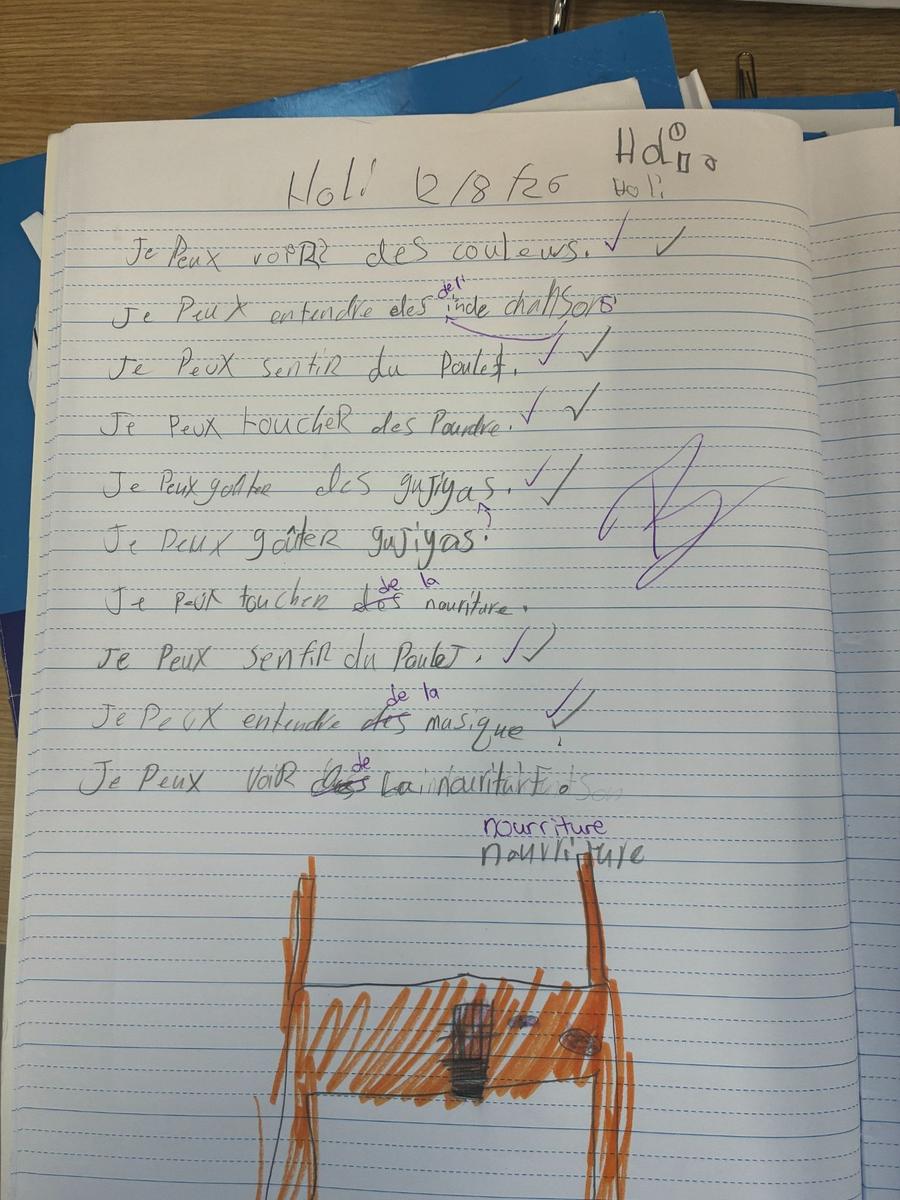 Holi 12/8/26
Holi
Je Peux voir des couleurs.
deli
Je Peux entendre des inde chansons
Je Peux sentir du Poulet.
Je Peux toucher des Poudre.
Je Peux goûter des gujiyas.
Je Peux goûter gujiyas.
de la
Je peux toucher des nouriture.
Je Peux sentir du Poulet.
de la
Je Peux entendre des masique
de
Je Peux voir des La nouriture.
nourriture
nourriture